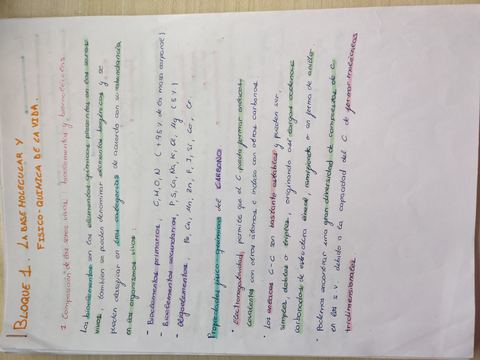 BLOQUE 1. LA BASE MOLECULAR Y
FÍSICO-QUÍMICA DE LA VIDA.
1. Composición de los seres vivos: bioelementos y biomoléculas
Los bioelementos son los elementos químicos presentes en los seres
vivos, también se pueden denominar elementos biogénicos y se
pueden clasificar en tres categorías de acuerdo con su abundancia
en los organismos vivos:
- Bioelementos primarios, C, H, O, N (+95% de la masa corporal)
- Bioelementos secundarios, P, S, Ca, Na, K, Cl, Mg (5%)
- Oligoelementos, Fe, Cu, Mn, Zn, F, I, Si, Co, Cr
Propiedades físico-químicas del CARBONO
• Electronegatividad, permite que el C pueda formar enlaces
covalentes con otros átomos e incluso con otros carbonos
• Los enlaces C-C son bastante estables y pueden ser,
simples, dobles o triples, originando así largas cadenas
carbonadas de estructura lineal, ramificada o en forma de anillo
• Podemos encontrar una gran diversidad de compuestos de C
en los s.v. debido a la capacidad del C de formar moléculas
tridimensionales.